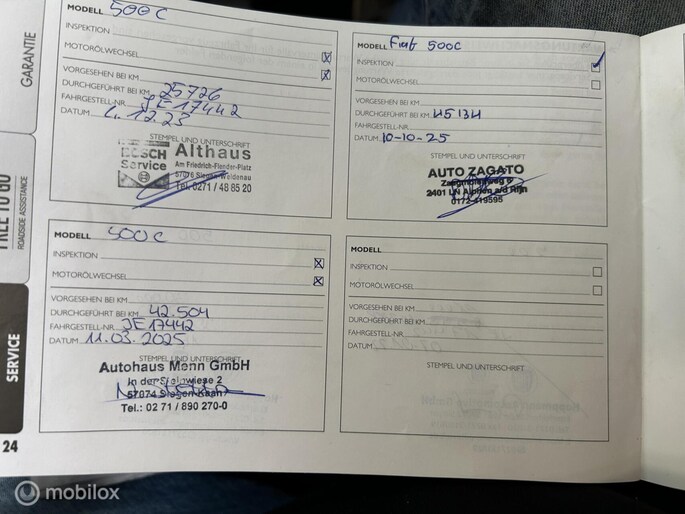 GARANTIE
FREE TO GO
ROADSIDE ASSISTANCE
SERVICE
24
MODELL 500C
INSPEKTION
MOTORÖLWECHSEL
VORGESEHEN BEI KM
DURCHGEFÜHRT BEI KM 25726
FAHRGESTELL-NR. JE17442
DATUM 12.23
STEMPEL UND UNTERSCHRIFT
BOSCH Service
Althaus
Am Friedrich-Flender-Platz
57076 Siegen-Weidenau
Tel. 0271 / 48 85 20
MODELL Fiat 500C
INSPEKTION
MOTORÖLWECHSEL
VORGESEHEN BEI KM
DURCHGEFÜHRT BEI KM 45134
FAHRGESTELL-NR.
DATUM 10-10-25
STEMPEL UND UNTERSCHRIFT
AUTO ZAGATO
2401 LN Alphen a/d Rijn
0172-419595
MODELL 500C
INSPEKTION
MOTORÖLWECHSEL
VORGESEHEN BEI KM
DURCHGEFÜHRT BEI KM 42.504
FAHRGESTELL-NR. JE17442
DATUM 11.03.2025
STEMPEL UND UNTERSCHRIFT
Autohaus Menn GmbH
In der Steinwiese 2
57074 Siegen
Tel.: 02 71 / 890 270-0
MODELL
INSPEKTION
MOTORÖLWECHSEL
VORGESEHEN BEI KM
DURCHGEFÜHRT BEI KM
FAHRGESTELL-NR.
DATUM
STEMPEL UND UNTERSCHRIFT
mobilox